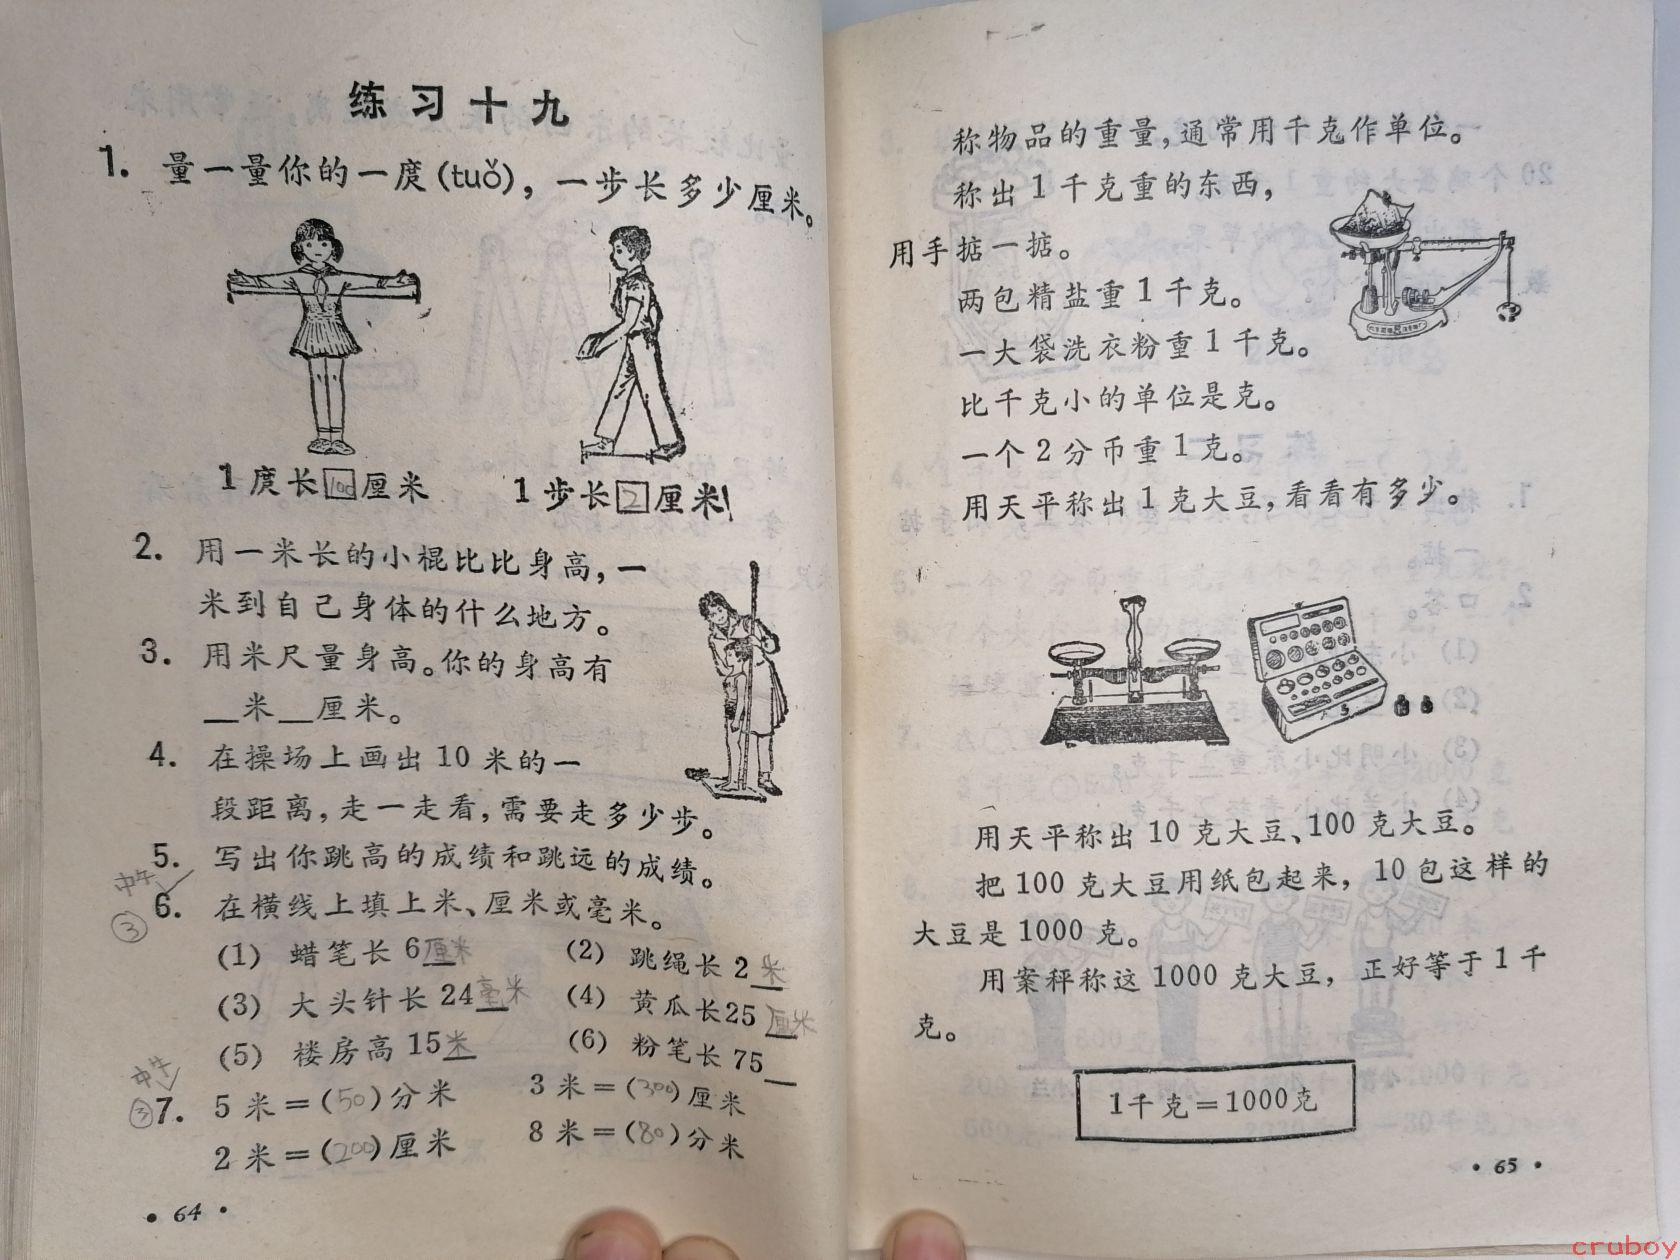 练习十九
1. 量一量你的一庹(tuǒ)，一步长多少厘米。
1庹长100厘米 1步长2厘米
2. 用一米长的小棍比比身高，一
米到自己身体的什么地方。
3. 用米尺量身高。你的身高有
__米__厘米。
4. 在操场上画出10米的一
段距离，走一走看，需要走多少步。
5. 写出你跳高的成绩和跳远的成绩。
中午
③
6. 在横线上填上米、厘米或毫米。
(1) 蜡笔长6厘米 (2) 跳绳长2米
(3) 大头针长24毫米 (4) 黄瓜长25厘米
(5) 楼房高15米 (6) 粉笔长75__
中午
③
7. 5米=(50)分米 3米=(300)厘米
2米=(200)厘米 8米=(80)分米
• 64 •
称物品的重量，通常用千克作单位。
称出1千克重的东西，
用手掂一掂。
两包精盐重1千克。
一大袋洗衣粉重1千克。
比千克小的单位是克。
一个2分币重1克。
用天平称出1克大豆，看看有多少。
用天平称出10克大豆、100克大豆。
把100克大豆用纸包起来，10包这样的
大豆是1000克。
用案秤称这1000克大豆，正好等于1千
克。
1千克=1000克
• 65 •
cruboy